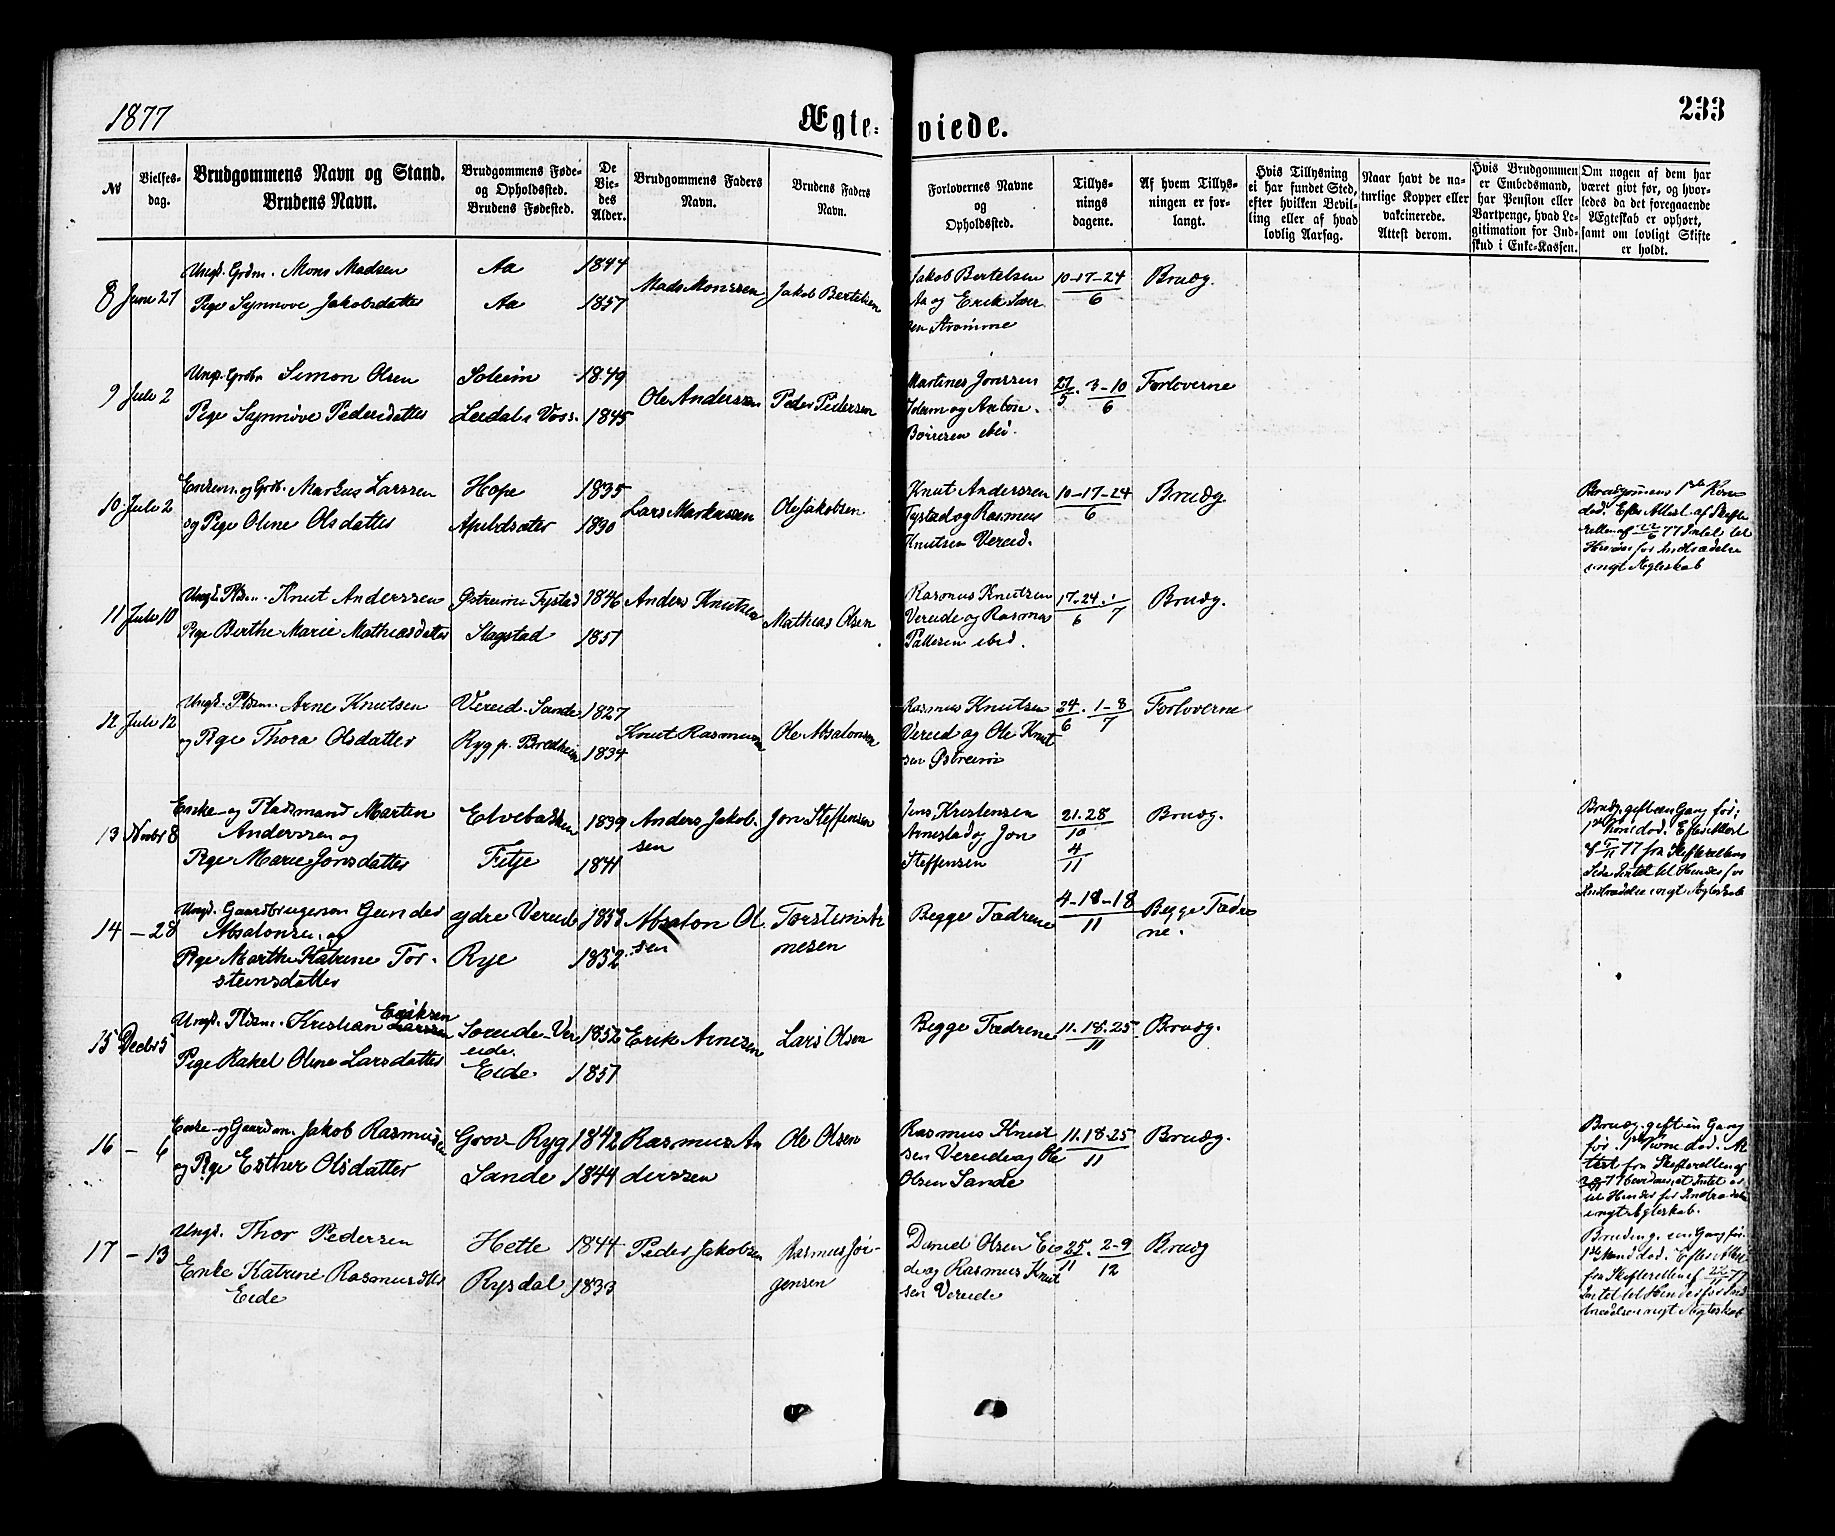 1877
Ægte-
viede.
233
№
Vielses-
dag.
Brudgommens Navn og Stand.
Brudens Navn.
Brudgommens Føde-
og Opholdssted.
Brudens Fødested.
De
Vie-
des
Alder.
Brudgommens Faders
Navn.
Brudens Faders
Navn.
Forlovernes Navne
og
Opholdssted.
Tillys-
nings
dagene.
Af hvem Tillys-
ningen er for-
langt.
Hvis Tillysning
ei har fundet Sted,
efter hvilken Bevil-
ling eller af hvad
lovlig Aarsag.
Naar havt de na-
turlige Kopper eller
vakcinerede.
Attest derom.
Hvis Brudgommen
er Embedsmand,
har Pension eller
Vartpenge, hvad Le-
gitimation for Ind-
skud i Enke-Kassen.
Om nogen af dem har
været givt før, og hvor-
ledes da det foregaaende
Ægteskab er ophørt,
samt om lovligt Skifte
er holdt.
8 Juni 27
Ungk. Grdm. Mons Madsen
Pige Synnøve Jakobsdatter
Aa 1844
Aa 1857
Mads Monssen
Jakob Bertelsen
Jakob Bertelsen
Aa og Erik Lar
sen Strømme
10-17-24
6
Brudg.
9 Juli 2
Ungk. Grdbr Simon Olsen
Pige Synnøve Pedersdatter
Soleim 1849
Leidal i Voss. 1845
Ole Anderssen
Peder Pedersen
Martines Jonssen
og Anton
ebid.
27 . 3-10
5 6
Forloverne
10 Juli 2
Enkem. og Grdb. Markus Larssen
og Pige Oline Olsdatter
Hope 1835
Apeldsæter 1890
Lars Markussen
Ole Jakobsen
Knut Anderssen
Tystad og Rasmus
Knutsen Vereid.
10-17-24
6
Brudg
Brudgomens 1ste Kone
død. Efter Attest af Skifte
retten af 22/6 77 Intet til
Hinder for Indtrædelse
i nyt Ægteskab
11 Juli 10
Ungk. Pldm. Knut Anderssen
Pige Berthe Marie Mathiasdatter
Østreim Tystad 1846
Slagstad 1857
Anders Knutsen
Mathias Olsen
Rasmus Knutsen
Vereide og Rasmus
Pallesen ebid.
17.24. 1
6 7
Brudg.
12 Juli 12
Ungk. Pldm. Arne Knutsen
og Pige Thora Olsdatter
Vereid-Sande 1827
Ryg p. Bredheim 1834
Knut Rasmussen
Ole Absalonsen
Rasmus Knutsen
Vereid og Ole Knut
sen Østreim
24 . 1-8
6 7
Forloverne
13 Novbr 8
Enke- og Pladsmand Martin
Anderssen og
Pige Marie Jonsdatter
Elvebakken 1839
Fitje 1841
Anders Jakob.
sen
Jon Steffensen
Jens Kristensen
Arnestad og Jon
Steffensen
21.28
10
4
11
Brudg.
Brudg. gift en Gang før;
1ste Kone død. Efter Attest
77 fra Skifteretten
Intet til Hinder for
Indtrædelse i nyt Ægteskab
14 - 28
Ungk. Gaardbrugerson Gunder
Absalonsen og
Pige Marthe Katrine Tor-
steinsdatter
ydre Vereide 1853
Rye 1852
Absalon Ol.
sen
Torstein Ar
nesen
Begge Fædrene
4-18-18
11
Begge Fædre
ne.
15 Decbr 5
Ungk. Pldm. Kristian Eriksen
Pige Rakel Oline Larsdatter
Søreide-Ver 1852
eide.
Eide. 1857
Erik Arnesen
Lars Olsen
Begge Fædrene
11.18.25
11
Brudg.
16 - 6
Enke- og Gaardm. Jakob Rasmussen
og Pige Esther Olsdatter
Grov-Ryg 1842
Sande 1844
Rasmus An
derssen
Ole Olsen
Rasmus Knut
sen Vereide og Ole
Olsen Sande
11.18.25
11
Brudg.
Brudg. gift en Gang
før. 1ste Kone død. At
test fra Skifteretten af
77 at Intet er
til Hinder for Indtrædelse
i nyt Ægteskab.
17 - 13
Ungk. Thor Pedersen
Enke Katrine Rasmusdtr
Eide
Hette 1844
Rysdal 1833
Peder Jakobsen
Rasmus Jør-
gensen
Daniel Olsen Ei
de og Rasmus Knut
sen Vereide
25 . 2-9
11 12
Brudg
Bruden g. en Gang før.
1ste Mand død. Efter Attest
fra Skifteretten af 22/11 77
Intet til Hinder for Ind
trædelse i nyt Ægteskab